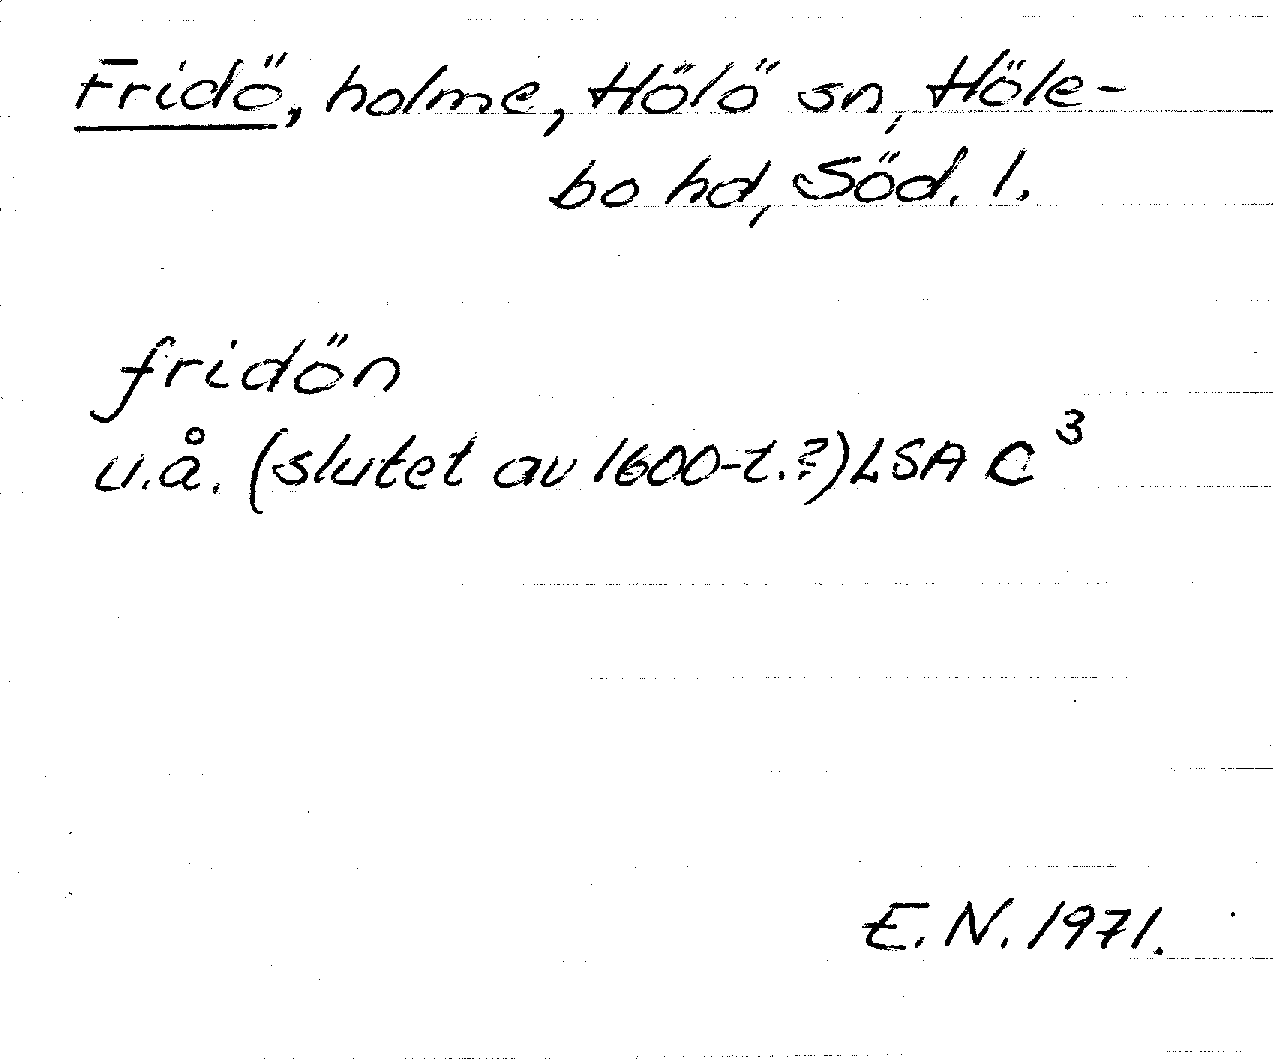 Fridö, holme, Hölö sn, Höle-
bo hd, Söd. l.
fridön
u.å. (slutet av 1600-t.?) LSA C³
E. N. 1971.